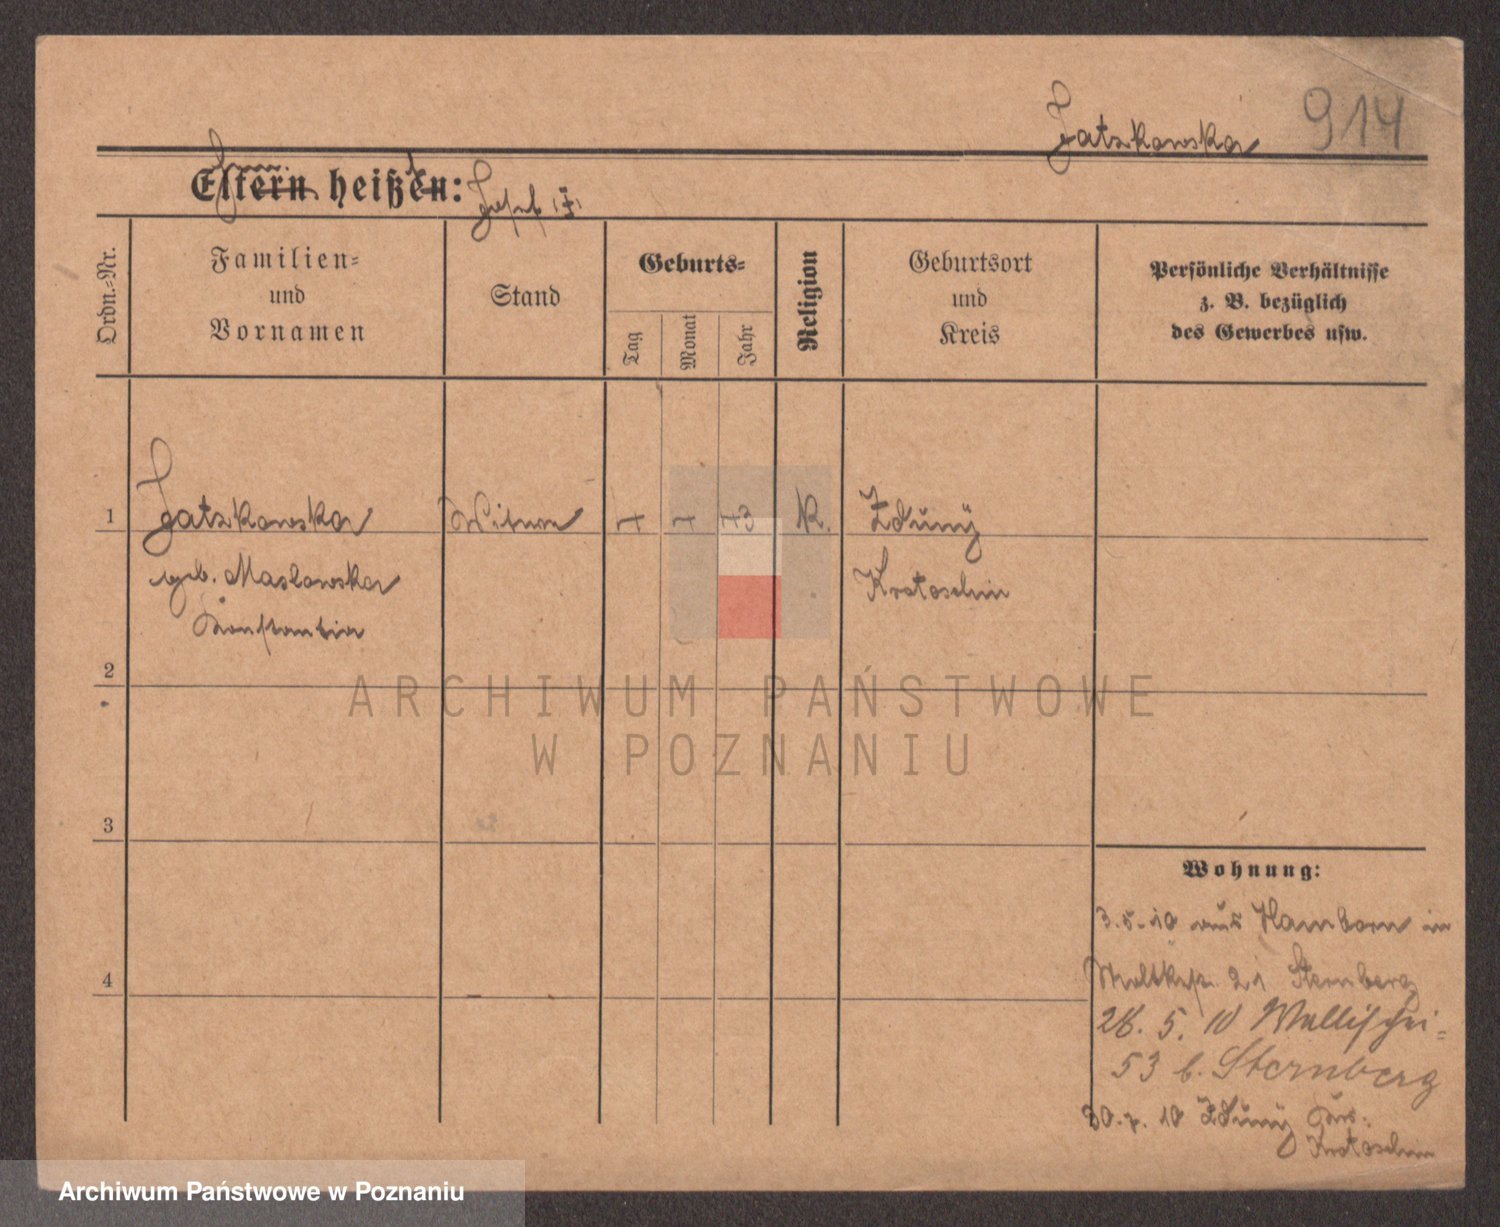 Jatzkowska 914
Eltern heißen: Josef (†)
Ordn.-Nr.
Familien-
und
Vornamen
Stand
Geburts-
Tag
Monat
Jahr
Religion
Geburtsort
und
Kreis
Persönliche Verhältnisse
z. B. bezüglich
des Gewerbes usw.
1 Jatzkowska Witwe 7 7 73 K. Zduny
geb. Maslowska Krotoschin
Konstantia
2
ARCHIWUM PAŃSTWOWE
W POZNANIU
3
Wohnung:
3.5.10 aus Hamborn in
4
Moltkestr. 21 Sternberg
28. 5. 10 Wallischei-
53 b. Sternberg
30.7.10 Zduny Krs.
Krotoschin
Archiwum Państwowe w Poznaniu